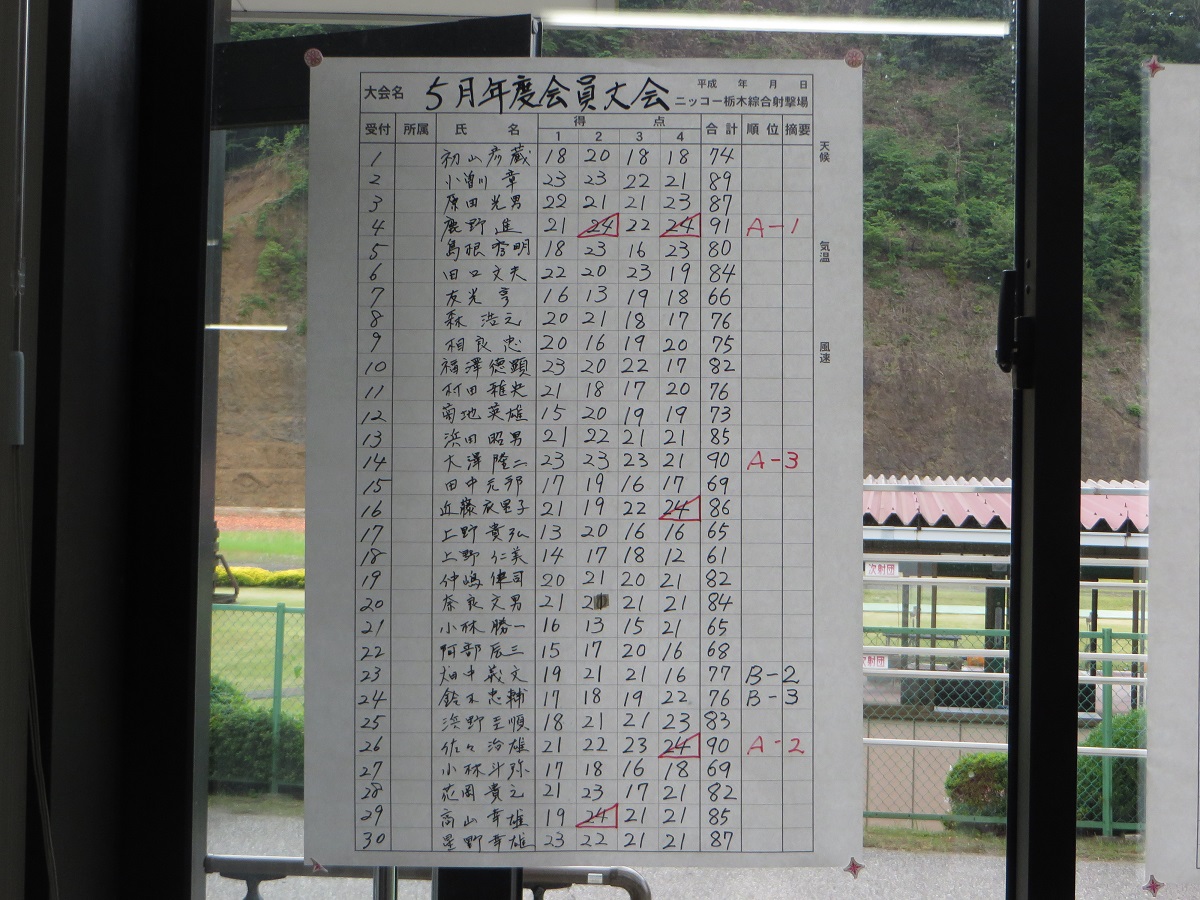 大会名 5月年度会員大会 平成 年 月 日
ニッコー栃木綜合射撃場
受付 所属 氏 名 得 点 合計 順位 摘要
1 2 3 4
1 初山彦蔵 18 20 18 18 74
2 小曽川 章 23 23 22 21 89
3 原田光男 22 21 21 23 87
4 鹿野 進 21 24 22 24 91 A-1
5 島根秀明 18 23 16 23 80
6 田口文夫 22 20 23 19 84
7 友光 亨 16 13 19 18 66
8 森 浩元 20 21 18 17 76
9 相良 忠 20 16 19 20 75
10 福澤德顕 23 20 22 17 82
11 村田雅史 21 18 17 20 76
12 菊地英雄 15 20 19 19 73
13 浜田昭男 21 22 21 21 85
14 大澤隆二 23 23 23 21 90 A-3
15 田中元邦 17 19 16 17 69
16 近藤衣里子 21 19 22 24 86
17 上野貴弘 13 20 16 16 65
18 上野仁美 14 17 18 12 61
19 仲嶋健司 20 21 20 21 82
20 奈良文男 21 21 21 84
21 小林勝一 16 13 15 21 65
22 阿部辰三 15 17 20 16 68
23 畑中義文 19 21 21 16 77 B-2
24 鈴木忠輔 17 18 19 22 76 B-3
25 浜野至順 18 21 21 23 83
26 佐々治雄 21 22 23 24 90 A-2
27 小林斗弥 17 18 16 18 69
28 花岡貴之 21 23 17 21 82
29 高山幸雄 19 24 21 21 85
30 星野幸雄 23 22 21 21 87
天候
気温
風速
次射団
次射団